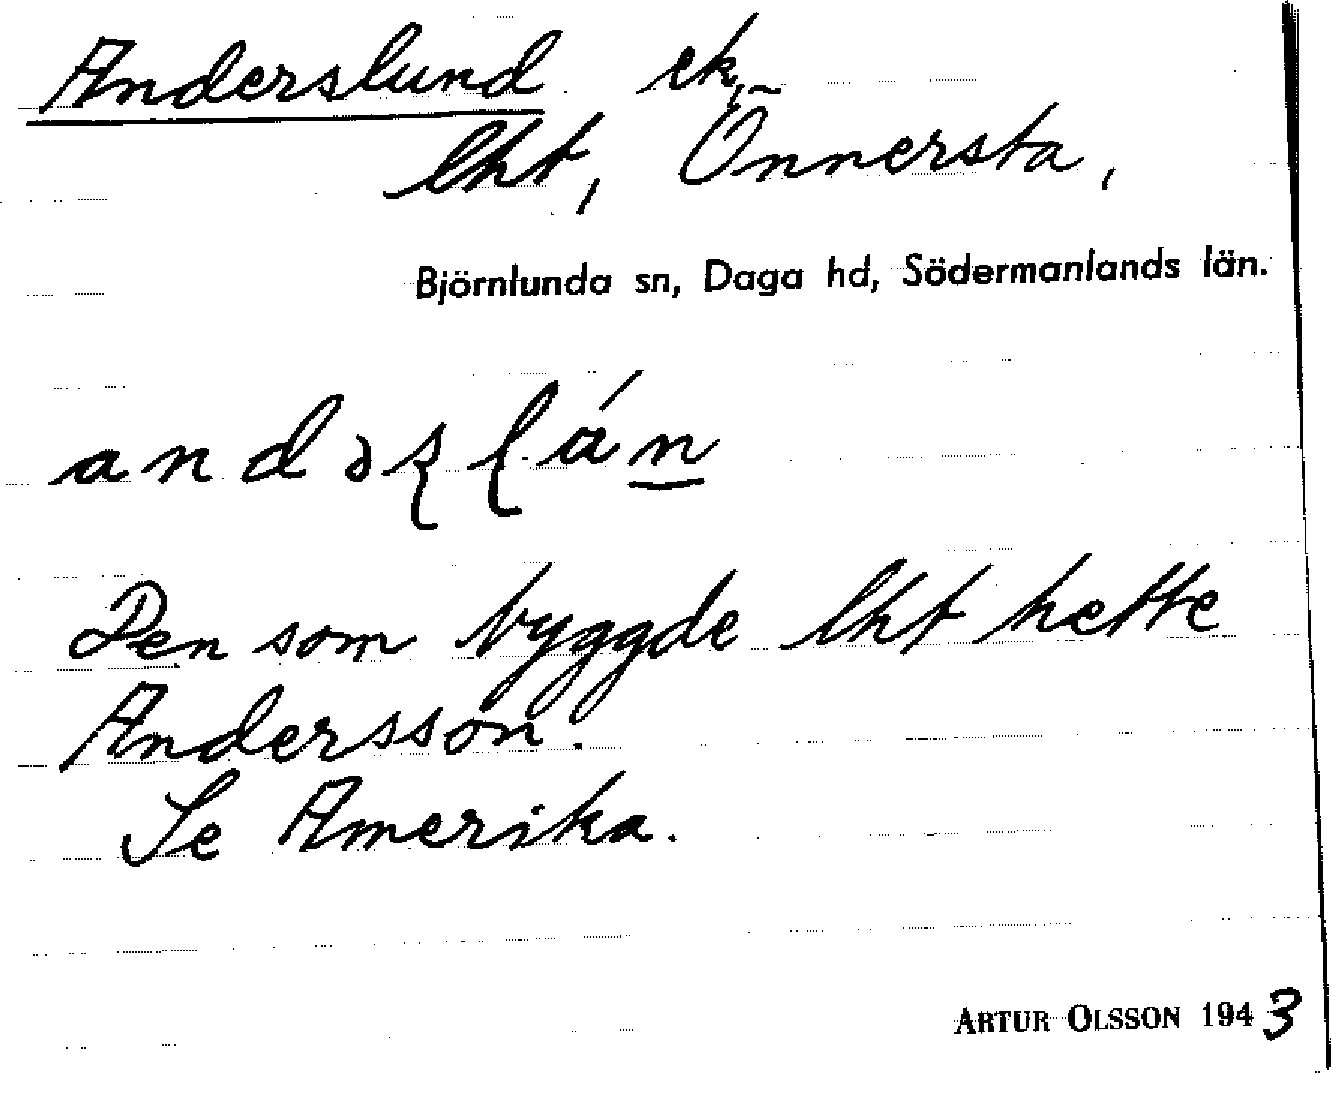 Anderslund ek,
lht, Önnersta,
Björnlunda sn, Daga hd, Södermanlands län.
Den som byggde lht hette
Andersson.
Se Amerika.
ARTUR OLSSON 1943